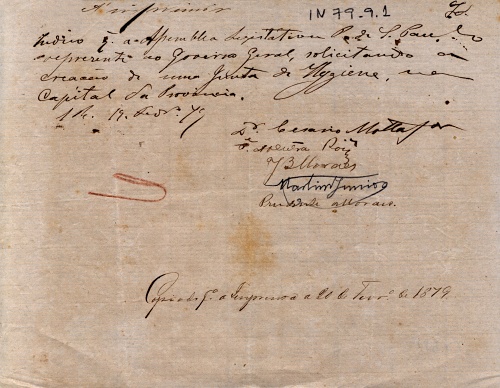 A imprimir
IN 79.9.1
Indico q. a Assemblea Legislativa P. de S. Paulo
represente ao Governo Geral, solicitando a
creacao de uma Junta de Hygiene, na
Capital da Provincia.
19. Fevr. 79
Dr. Cesario Motta Jor
J B Moraes
Martim Junior
Prudente Moraes.
Copiado p. a Imprensa a 20 de Fevr. de 1879.